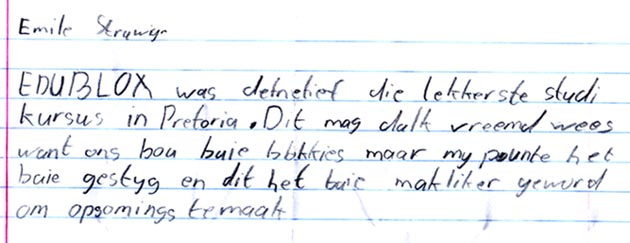 Emile Struwig
EDUBLOX was defnetief die lekkerste studi
kursus in Pretoria. Dit mag dalk vreemd wees
want ons bou baie blokkies maar my pounte het
baie gestyg en dit het baie makliker geword
om opsomings temaak